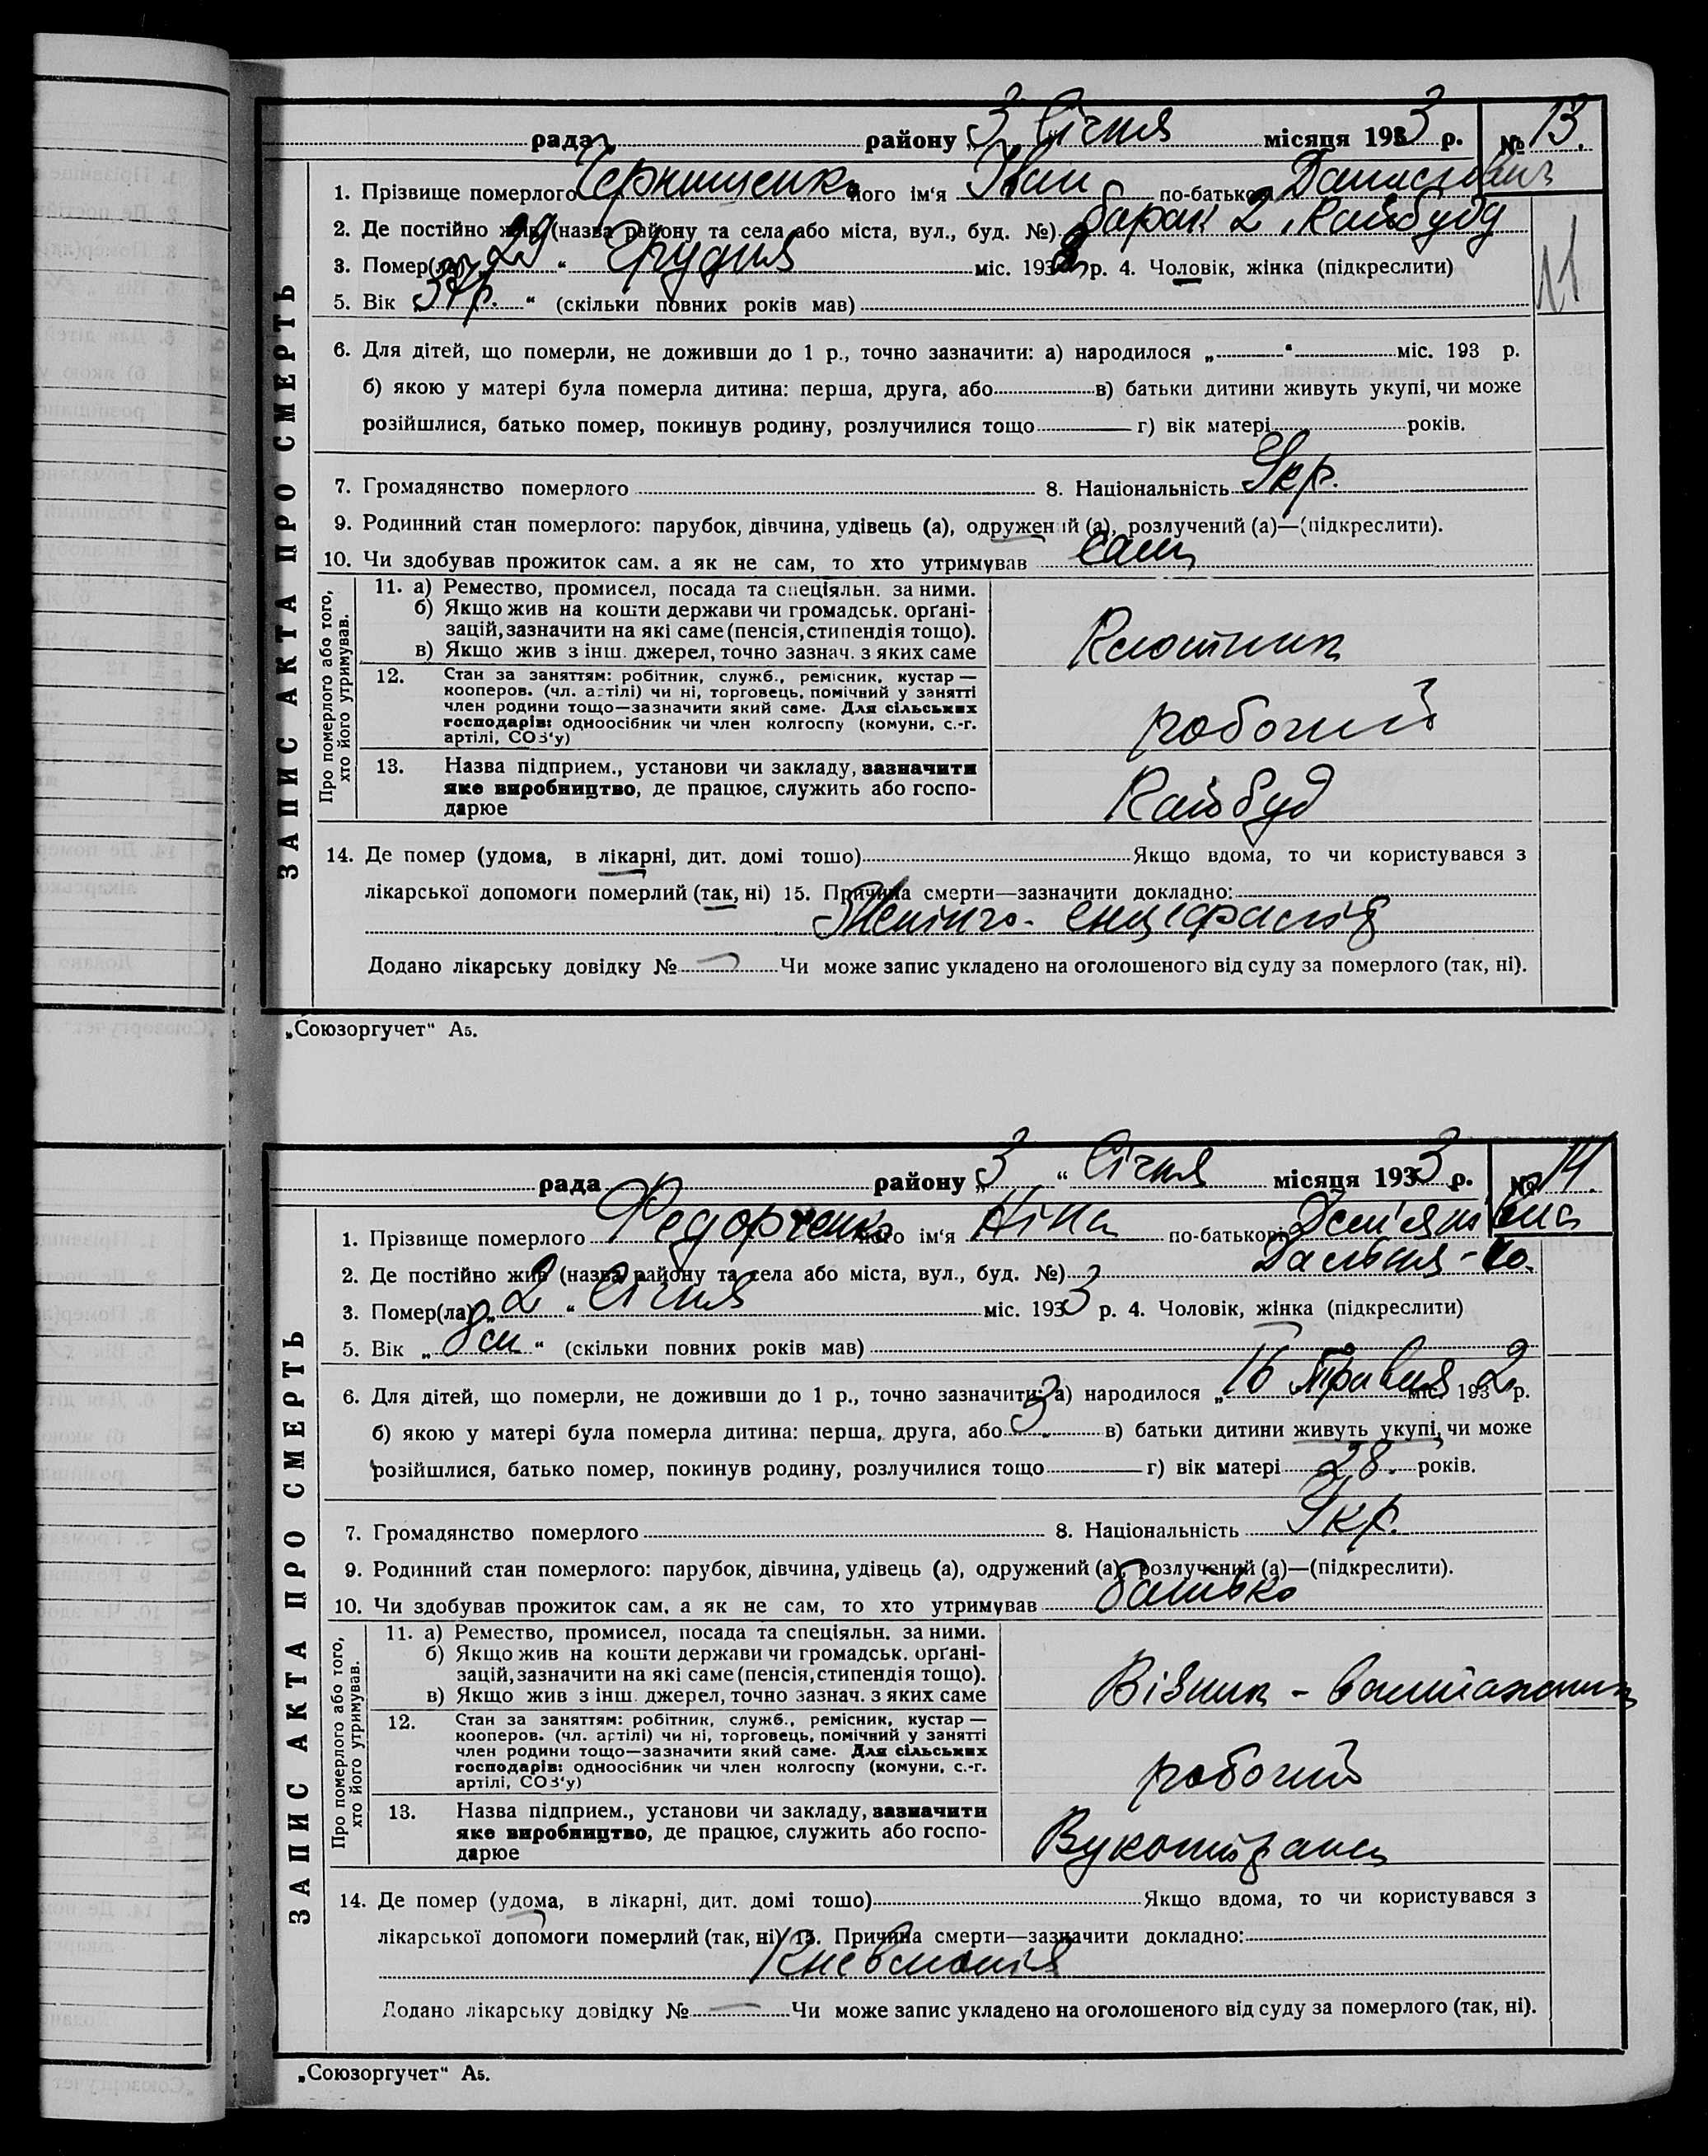 рада району „ 3 " Січня місяця 1933 р. № 13.
1. Прізвище померлого Чернищенко його ім'я Іван по-батькові
2. Де постійно жив (назва району та села або міста, вул., буд. №) барак 2, Райбуду
3. Помер(ла) „ 29 " Грудня міс. 1932 р. 4. Чоловік, жінка (підкреслити)
11
5. Вік „ 37 р. " (скільки повних років мав)
6. Для дітей, що померли, не доживши до 1 р., точно зазначити: а) народилося „ " міс. 193 р.
б) якою у матері була померла дитина: перша, друга, або в) батьки дитини живуть укупі, чи може
розійшлися, батько помер, покинув родину, розлучилися тощо г) вік матері років.
7. Громадянство померлого 8. Національність Укр.
9. Родинний стан померлого: парубок, дівчина, удівець (а), одружений (а), розлучений (а)—(підкреслити).
10. Чи здобував прожиток сам, а як не сам, то хто утримував сам
ЗАПИС АКТА ПРО СМЕРТЬ
Про померлого або того, хто його утримував.
11. а) Ремество, промисел, посада та спеціяльн. за ними.
б) Якщо жив на кошти держави чи громадськ. органі-
зацій, зазначити на які саме (пенсія, стипендія тощо).
в) Якщо жив з інш. джерел, точно зазнач. з яких саме
Плотник
12. Стан за заняттям: робітник, служб., ремісник, кустар —
кооперов. (чл. артілі) чи ні, торговець, помічний у занятті
член родини тощо—зазначити який саме. Для сільських
господарів: одноосібник чи член колгоспу (комуни, с.-г.
артілі, СОЗ'у)
робочий
13. Назва підприєм., установи чи закладу, зазначити
яке виробництво, де працює, служить або госпо-
дарює
Райбуд
14. Де помер (удома, в лікарні, дит. домі тощо) Якщо вдома, то чи користувався з
лікарської допомоги померлий (так, ні) 15. Причина смерти—зазначити докладно:
Менінго-енцефаліт
Додано лікарську довідку № Чи може запис укладено на оголошеного від суду за померлого (так, ні).
„Союзоргучет" А5.
рада району „ 3 " Січня місяця 1933 р. № 14.
1. Прізвище померлого Федорченко його ім'я Ніна по-батькові Дем'янівна
2. Де постійно жив (назва району та села або міста, вул., буд. №) Дальня - 10.
3. Помер(ла) „ 2 " Січня міс. 1933 р. 4. Чоловік, жінка (підкреслити)
5. Вік „ 8 м " (скільки повних років мав)
6. Для дітей, що померли, не доживши до 1 р., точно зазначити: а) народилося „ 16 Травня міс. 1932 р.
б) якою у матері була померла дитина: перша, друга, або 3 в) батьки дитини живуть укупі, чи може
розійшлися, батько помер, покинув родину, розлучилися тощо г) вік матері 28. років.
7. Громадянство померлого 8. Національність Укр.
9. Родинний стан померлого: парубок, дівчина, удівець (а), одружений (а), розлучений (а)—(підкреслити).
10. Чи здобував прожиток сам, а як не сам, то хто утримував батько
ЗАПИС АКТА ПРО СМЕРТЬ
Про померлого або того, хто його утримував.
11. а) Ремество, промисел, посада та спеціяльн. за ними.
б) Якщо жив на кошти держави чи громадськ. органі-
зацій, зазначити на які саме (пенсія, стипендія тощо).
в) Якщо жив з інш. джерел, точно зазнач. з яких саме
Візник -
12. Стан за заняттям: робітник, служб., ремісник, кустар —
кооперов. (чл. артілі) чи ні, торговець, помічний у занятті
член родини тощо—зазначити який саме. Для сільських
господарів: одноосібник чи член колгоспу (комуни, с.-г.
артілі, СОЗ'у)
робочий
13. Назва підприєм., установи чи закладу, зазначити
яке виробництво, де працює, служить або госпо-
дарює
Вукопітранс
14. Де помер (удома, в лікарні, дит. домі тощо) Якщо вдома, то чи користувався з
лікарської допомоги померлий (так, ні) 15. Причина смерти—зазначити докладно:
Пневмонія
Додано лікарську довідку № Чи може запис укладено на оголошеного від суду за померлого (так, ні).
„Союзоргучет" А5.